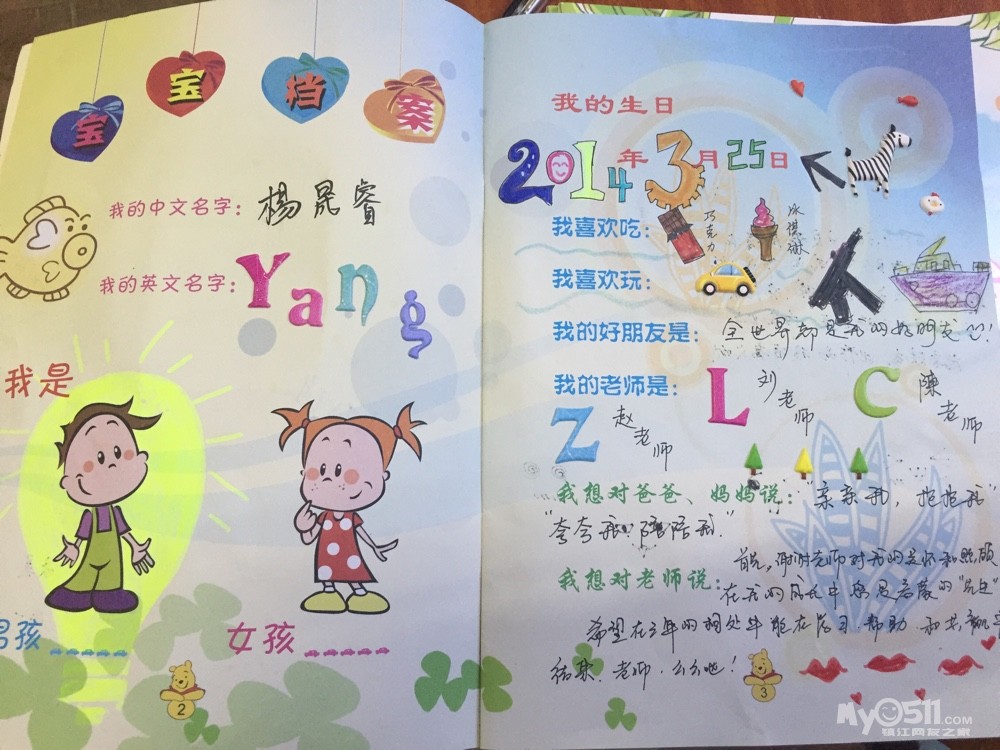 宝宝档案
我的中文名字：楊晟睿
我的英文名字：Yang
我是
男孩
女孩
2
我的生日
2014年3月25日
我喜欢吃：巧克力 冰淇淋
我喜欢玩：
我的好朋友是：全世界都是我的好朋友
我的老师是：Z 赵老师 L 刘老师 C 陳老师
我想对爸爸、妈妈说：亲亲我，抱抱我
"夸夸我，陪陪我"
我想对老师说：
首先，谢谢老师对我的关怀和照顾
在我的成长中
希望在三年的相处中能在学习 帮助 和共
老师，么么哒！
3
My0511.COM
镇江网友之家